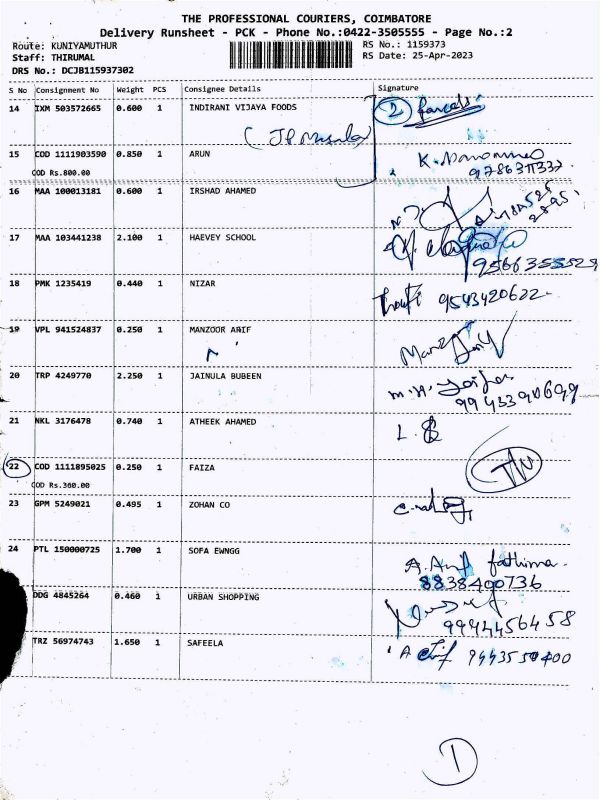 THE PROFESSIONAL COURIERS, COIMBATORE
Delivery Runsheet - PCK - Phone No.:0422-3505555 - Page No.:2
Route: KUNIYAMUTHUR RS No.: 1159373
Staff: THIRUMAL RS Date: 25-Apr-2023
DRS No.: DCJB115937302
S No Consignment No Weight PCS Consignee Details Signature
14 IXM 503572665 0.600 1 INDIRANI VIJAYA FOODS 2 Parcels
15 COD 1111903590 0.850 1 ARUN
COD Rs.800.00
16 MAA 100013181 0.600 1 IRSHAD AHAMED
17 MAA 103441238 2.100 1 HAEVEY SCHOOL
9566355529
18 PMK 1235419 0.440 1 NIZAR
9543420622
19 VPL 941524837 0.250 1 MANZOOR ARIF
20 TRP 4249770 2.250 1 JAINULA BUBEEN
9943390699
21 NKL 3176478 0.740 1 ATHEEK AHAMED
22 COD 1111895025 0.250 1 FAIZA
COD Rs.360.00
23 GPM 5249021 0.495 1 ZOHAN CO
24 PTL 150000725 1.700 1 SOFA EWNGG
fathima
8838400736
DDG 4845264 0.460 1 URBAN SHOPPING
9994456458
TRZ 56974743 1.650 1 SAFEELA
9443550400
1